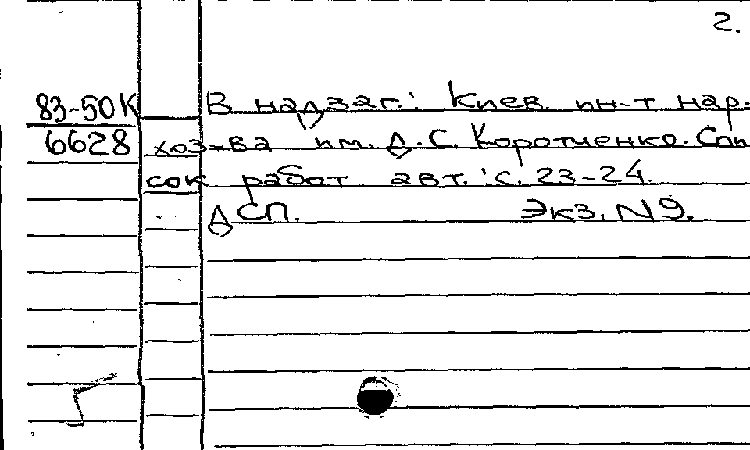 2.
83-50К В надзаг.: Киев. ин-т нар.
6628 хоз-ва им. Д.С. Коротченко. Спи
сок работ авт.: с. 23-24.
ДСП. Экз. N9.